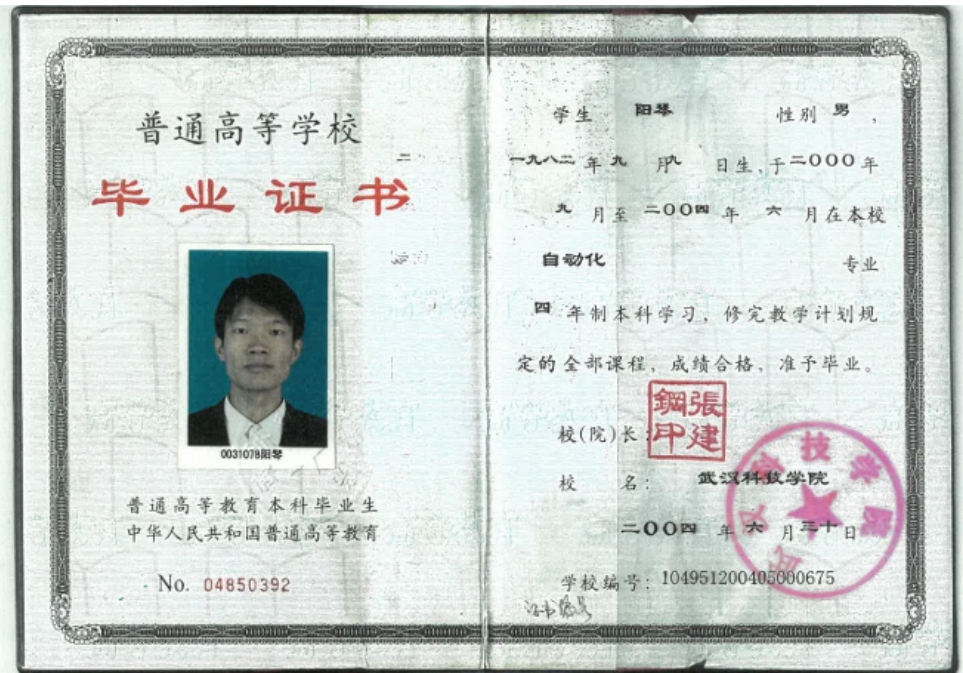 普通高等学校
毕业证书
0031078阳琴
普通高等教育本科毕业生
中华人民共和国普通高等教育
No. 04850392
学生 阳琴 性别 男,
一九八二 年 九 月 九 日生,于 二〇〇〇 年
九 月至 二〇〇四 年 六 月在本校
自动化 专业
四 年制本科学习,修完教学计划规
定的全部课程,成绩合格,准予毕业。
校(院)长:
張建鋼印
校 名: 武汉科技学院
二〇〇四 年 六 月 三十 日
武汉科技学院
学校编号: 104951200405000675